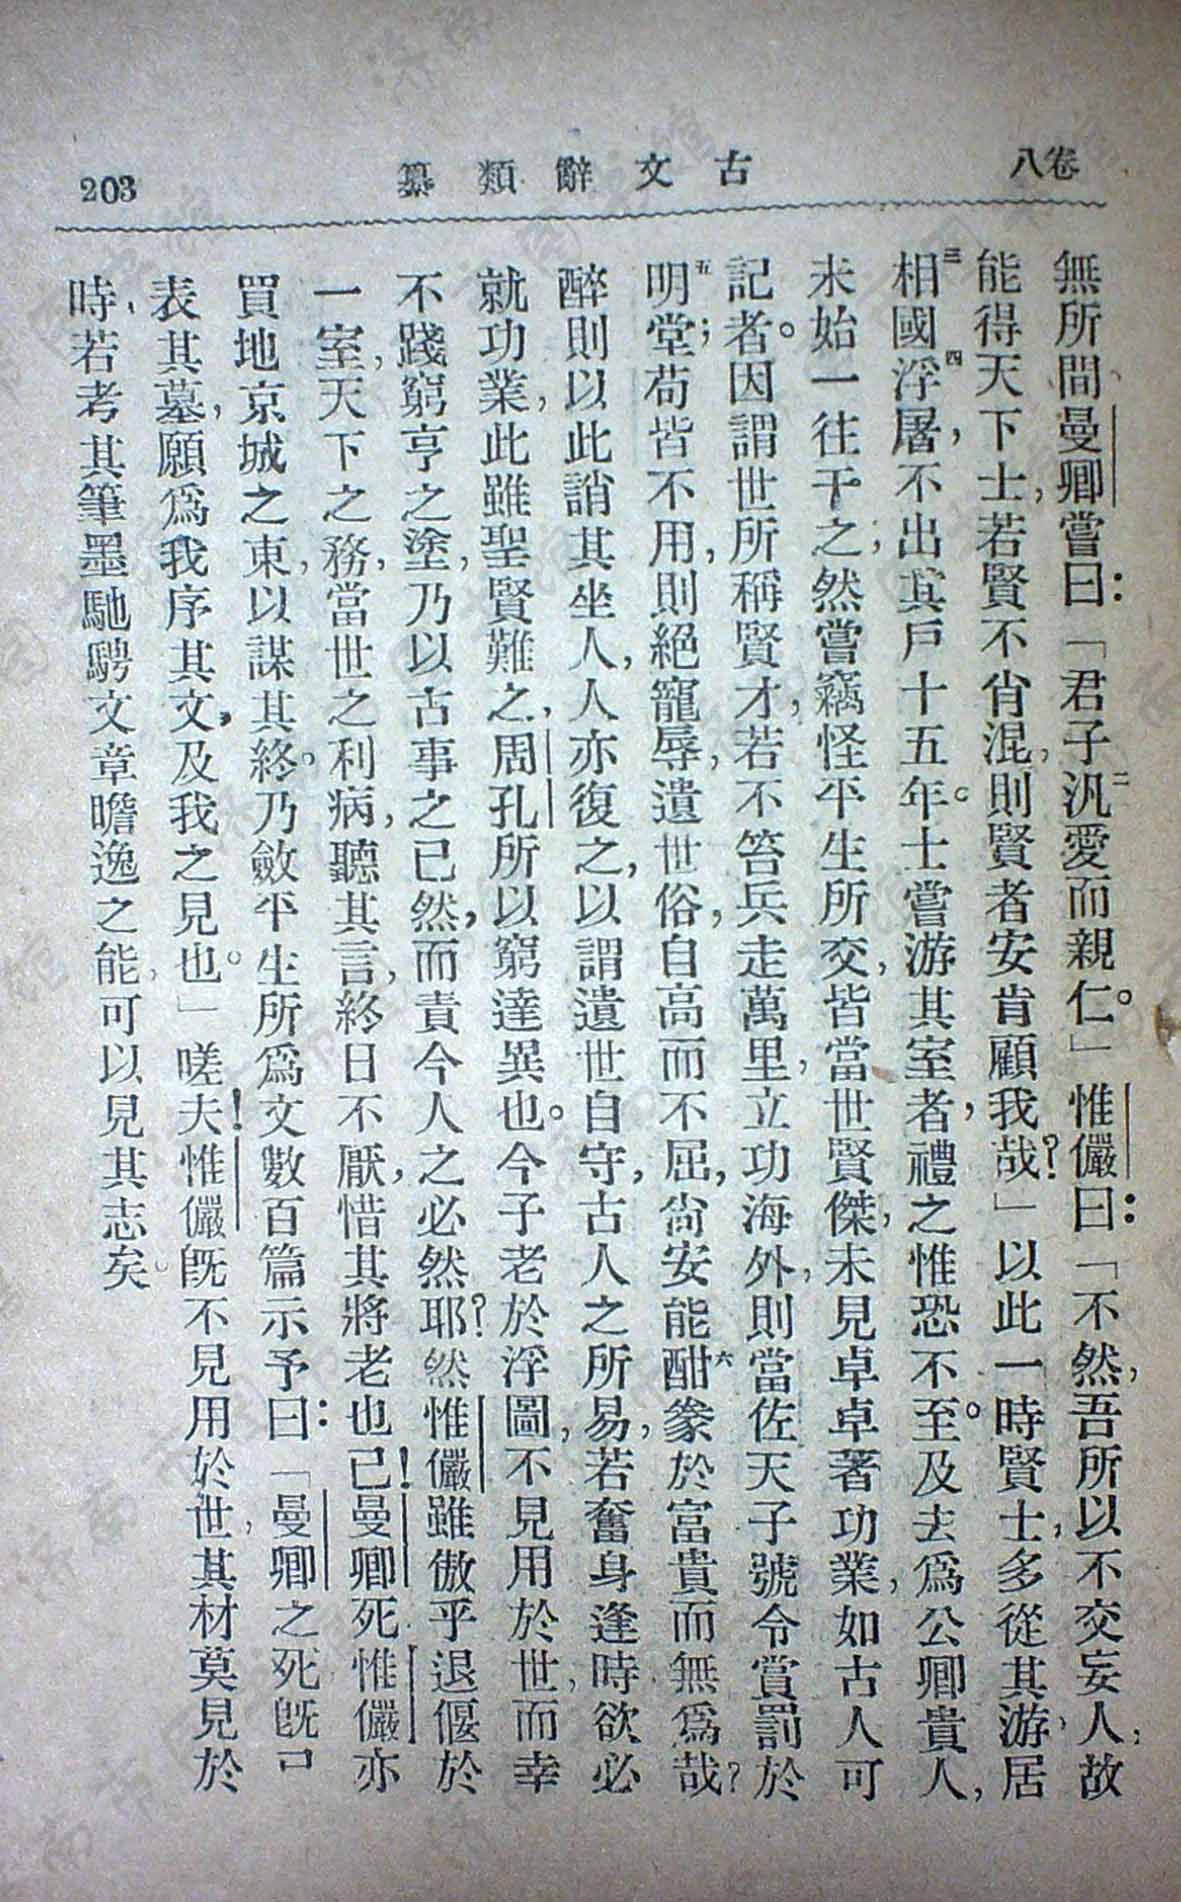 卷八
古文辭類纂
203
無所間、曼卿嘗曰:「君子汎二愛而親仁。」惟儼曰:「不然,吾所以不交妄人,故
能得天下士,若賢不肖混,則賢者安肯顧我哉?」以此一時賢士,多從其游,居
相三國浮四屠,不出其戶十五年。士嘗游其室者,禮之惟恐不至。及去爲公卿貴人,
未始一往干之;然嘗竊怪平生所交,皆當世賢傑,未見卓卓著功業,如古人可
記者。因謂世所稱賢才,若不笞兵走萬里,立功海外,則當佐天子號令賞罰於
明五堂;苟皆不用,則絕寵辱,遺世俗,自高而不屈,尙安能酣六豢於富貴而無爲哉?
醉則以此誚其坐人,人亦復之,以謂遺世自守,古人之所易,若奮身逢時,欲必
就功業,此雖聖賢難之,周孔所以窮達異也。今子老於浮圖,不見用於世,而幸
不踐窮亨之塗,乃以古事之已然,而責今人之必然耶?然惟儼雖傲乎退偃於
一室,天下之務,當世之利病,聽其言,終日不厭,惜其將老也已!曼卿死,惟儼亦
買地京城之東,以謀其終。乃斂平生所爲文數百篇示予曰:「曼卿之死旣已
表其墓,願爲我序其文,及我之見也。」嗟夫!惟儼旣不見用於世,其材莫見於
時、若考其筆墨馳騁文章贍逸之能,可以見其志矣。